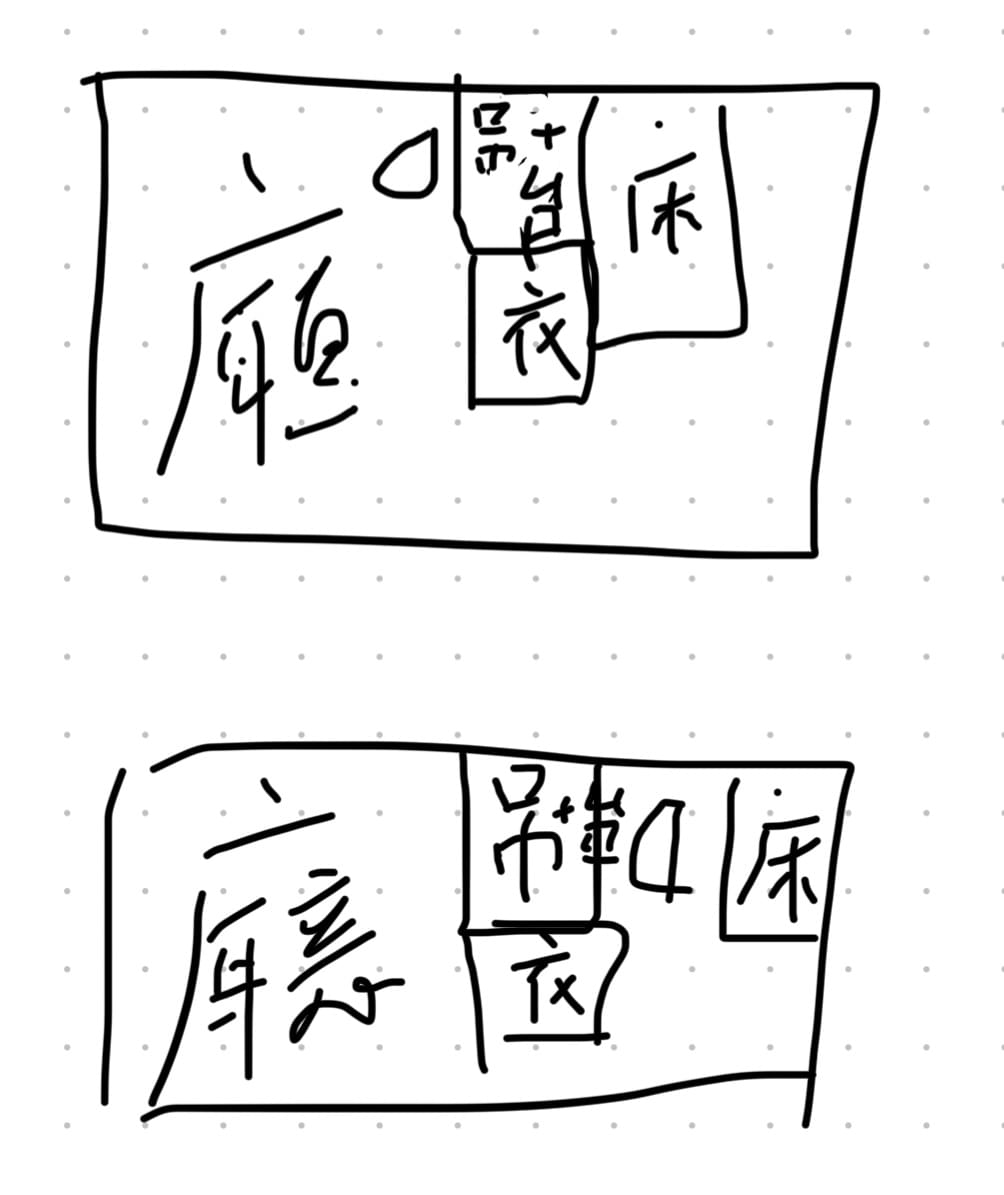 廳
吊+台
床
衣
廳
吊+
床
衣